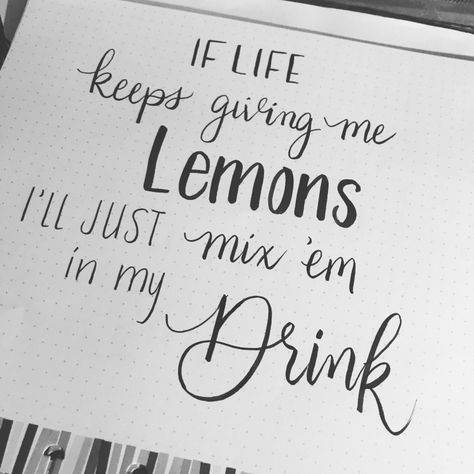 IF LIFE
keeps giving me
Lemons
I'LL JUST mix 'em
in my
Drink